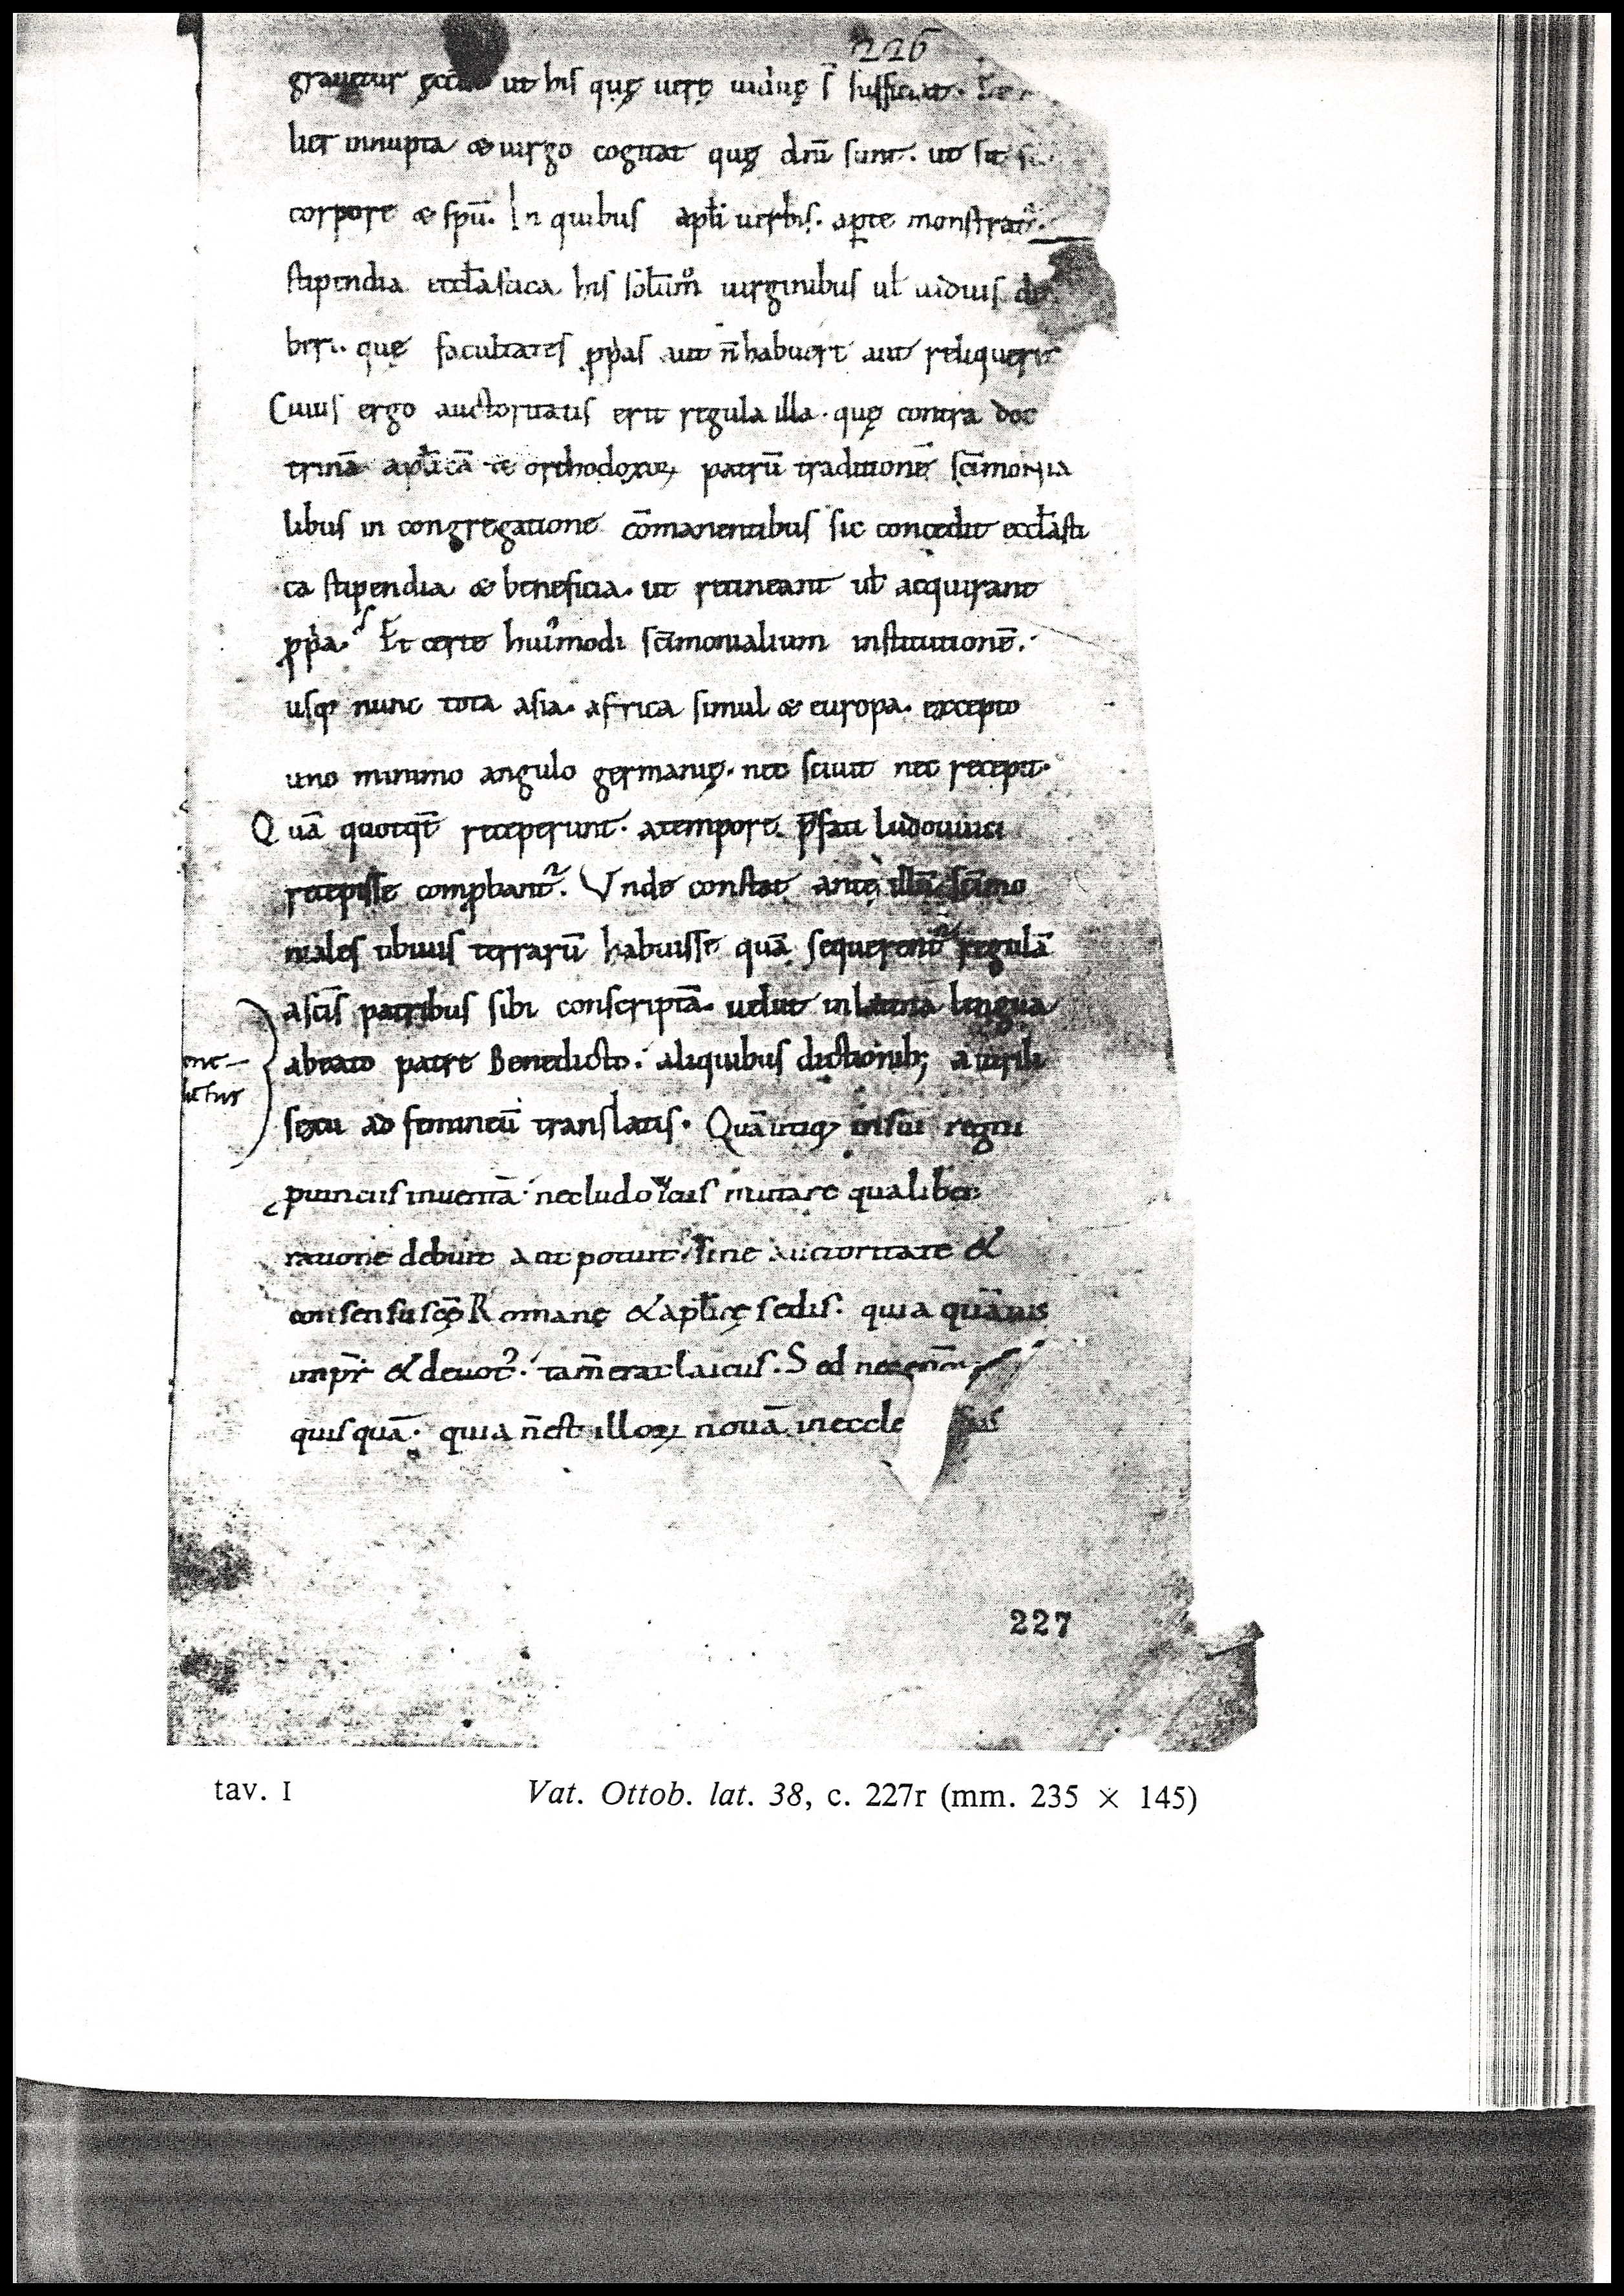 226
grauetur ęccl ut his quę uerę uiduę s̄ sufficiat.
liet innupta & uirgo cogitat quę dn̄i sunt. ut sit
corpore & sp̄u. In quibus apl̄i uerbis. aperte monstrat
stipendia eccl̄asica his solūm̊ uirginibus ul̄ uiduis de
beri. quę facultates pp̄as aut n̄ habuert̄ aut reliquert̄
Cuius ergo auctoritatis erit regula illa. quę contra doc
trinā apl̄icā & orthodoxoꝝ patrū traditionē sc̄imonia
libus in congregatione cōmanentibus sic concedit eccl̄asti
ca stipendia & beneficia. ut retineant ul̄ acquirant
pp̄a. Et certe hui᷒modi sc̄imonialium institutionē.
usq; nunc tota asia. africa simul & europa. excepto
uno minimo angulo germanię. nec sciuit nec recepit.
Quā quotqt̄ receperunt. a tempore. p̄fati ludouuici
recepisse comp̱bant᷑. Vnde constat ante illū sc̄imo
niales ubiuis terrarū habuisse quā sequerent᷑ regulā
a sc̄is patribus sibi conscriptā. uelut in latina lingua
a beato patre Benedicto. aliquibus dictionib; a uirili
sexu ad femineū translatis. Quā utiq; in sui regni
ꝓuinciis inuentā. nec ludowicus mutare qualibet
ratione debuit aut potuit. sine auctoritate &
consensu scę̄ Romanę & apl̄icę sedis. quia quāuis
imp̄r & deuot᷒. tam̄ erat laicus. Sed nec
quisquā. quia n̄ est illoꝝ nouā in eccle
227
tav. I Vat. Ottob. lat. 38, c. 227r (mm. 235 × 145)